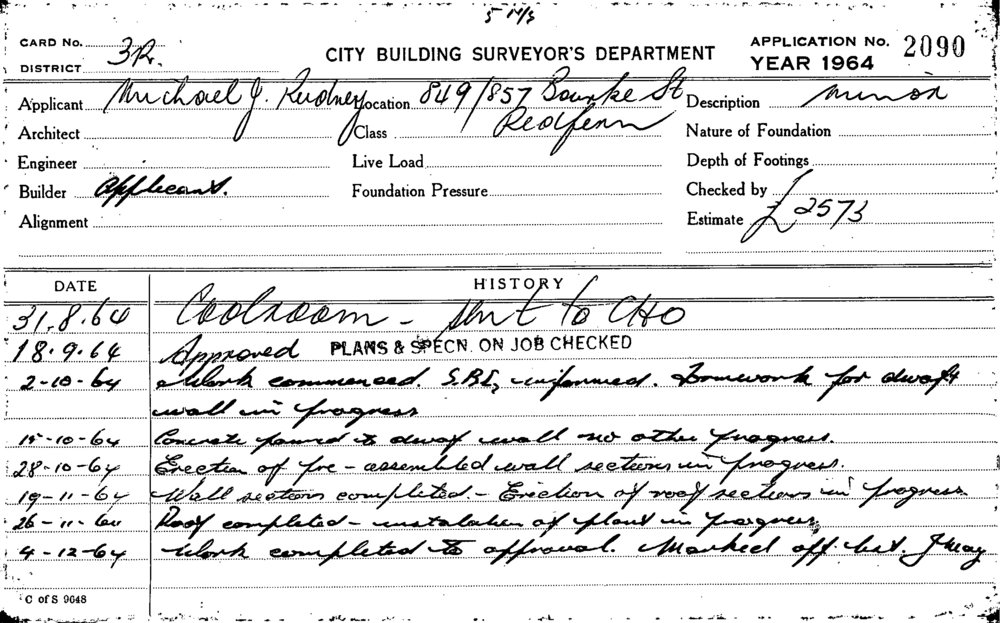 5 11/3
CARD No. 3R. CITY BUILDING SURVEYOR'S DEPARTMENT APPLICATION No. 2090
DISTRICT YEAR 1964
Applicant Michael J. Rudney Location 849/857 Bourke St Description Minor
Architect Class Redfern Nature of Foundation
Engineer Live Load Depth of Footings
Builder Applicant. Foundation Pressure Checked by
Alignment Estimate £2573
DATE HISTORY
31.8.64 Coolroom - sent to CHO
18.9.64 Approved PLANS & SPECN. ON JOB CHECKED
2-10-64 Work commenced. S.B.I. informed. Formwork for dwarf
wall in progress
15-10-64 Concrete poured to dwarf wall no other progress.
28-10-64 Erection of pre-assembled wall sections in progress.
19-11-64 Wall sections completed - Erection of roof sections in progress
26-11-64 Roof completed - instalation of plant in progress
4-12-64 Work completed to approval. Marked off list. J May
C of S 9648